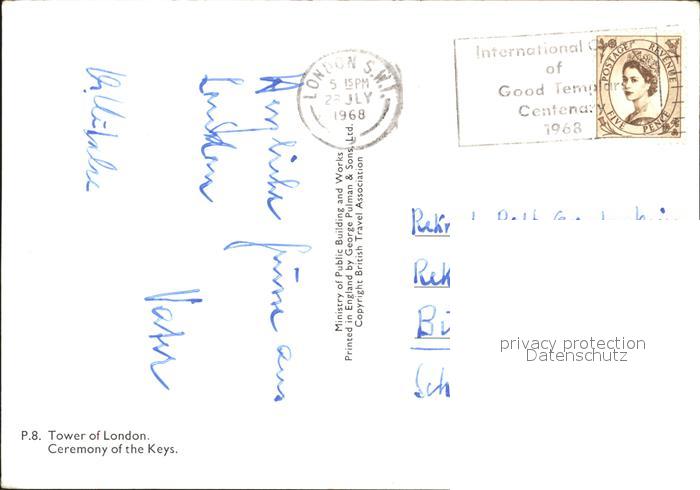 LONDON S.W.1
5 15PM
23 JLY
1968
International
of
Good Templars
Centenary
1968
POSTAGE REVENUE
FIVE PENCE
Herzliche Grüsse aus
London
Vater
Ministry of Public Building and Works
Printed in England by George Pulman & Sons, Ltd.
Copyright British Travel Association
Rek
Bi
Sch
privacy protection
Datenschutz
P.8. Tower of London.
Ceremony of the Keys.